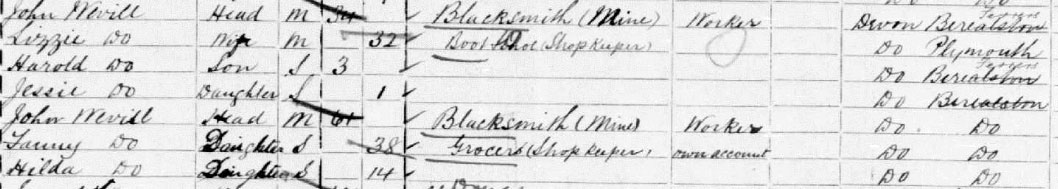 John Nevill Head M 34 Blacksmith (Mine) Worker Devon Berealston
Lizzie Do Wife M 32 Boot Shoe (Shopkeeper) Do Plymouth
Harold Do Son S 3 Do Berealston
Jessie Do Daughter S 1 Do Berealston
John Nevill Head M 61 Blacksmith (Mine) Worker Do Do
Fanny Do Daughter S 38 Grocers (Shopkeeper) own account Do Do
Hilda Do Daughter S 14 Do Do